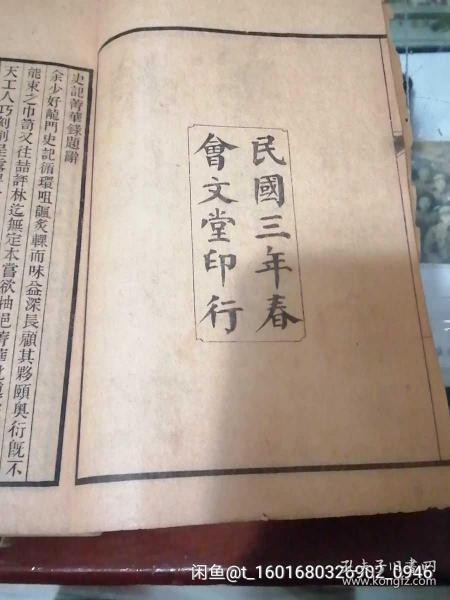 民國三年春
會文堂印行
史記菁華錄題辭
余少好龍門史記循環咀諷炙輠而味益深長顧其夥頤奧衍既不
能束之巾笥又往喆評林迄無定本嘗欲抽挹菁華
天工人巧刻削呈露
闲鱼@t_1601680326902_0946
孔夫子旧书网
www.kongfz.com